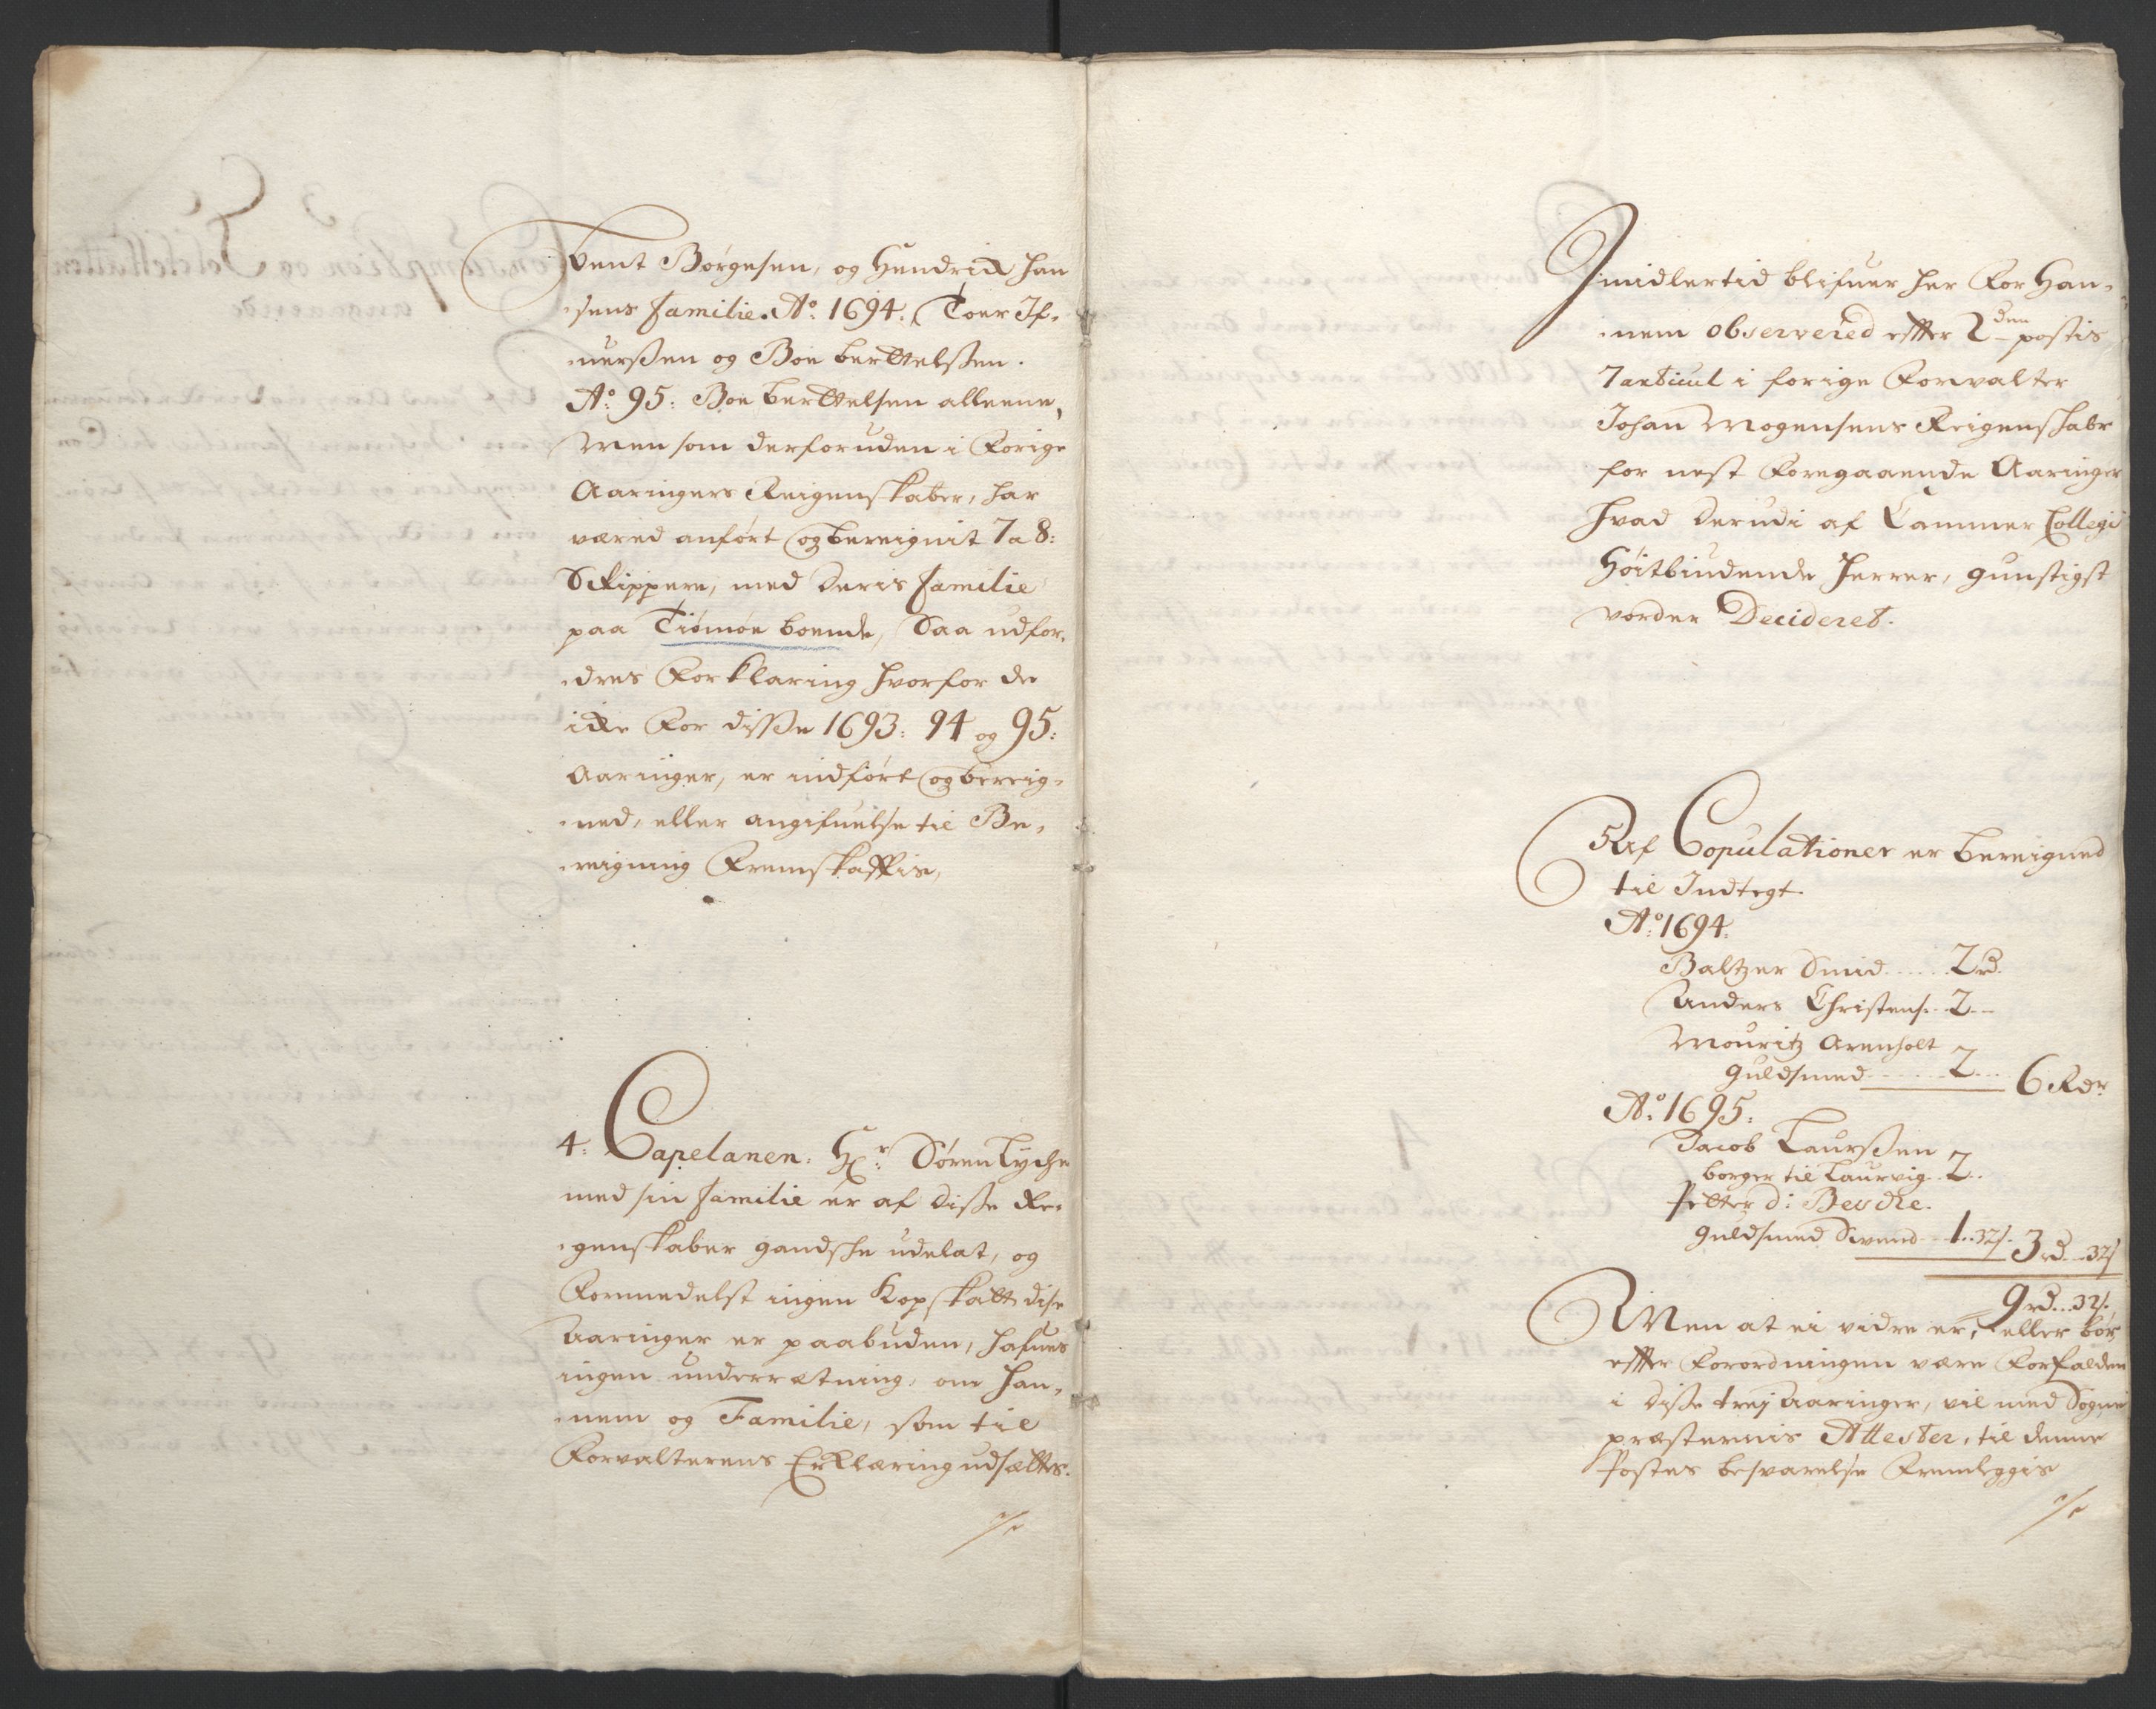 Svent Børgesen, og Hendrich Han
sens familie. Ao: 1694. Toer If-
uerssen og Boe berttelssen.
Ao: 95: Boe berttelsen alleene,
Men som derforuden i Forige
Aaringers Reigenskaber, har
værid anført og bereignit 7 a 8:
Skippere, med deris familie
paa Tiømøe boende, Saa udfor-
dres Forklaring hvorfor de
icke For disse 1693: 94 og 95:
Aaringer, er indført og bereig-
ned, eller angifuelse til Be-
reigning Fremskaffis,
4: Capelanen. Hr: Søren Lyche
med sin familie er af disse Re-
genskaber gandsche udelat, og
Formedelst ingen Kopskatt dise
Aaringer er paabuden, hafues
ingen underrætning, om han-
nem og Familie, som til
Forvalterens Erklæring udsættes.
Imidlertid blifuer her For Han-
nem observered effter 2den postis
7 articul i forige Forvalter
Johan Mogensens Reigenskabr
for nest Foregaaende Aaringer
hvad derudi af Cammer Collegi
Høitbiudende Herrer, gunstigst
vorder Decideret.
5 Af Copulationer er bereigned
til Indtegt.
Ao: 1694.
Baltzer Smid 2 rd.
Anders Christens. 2
Mouritz Arenholt
guldsmed 2 6 Rdr
Ao: 1695:
Jacob Laurssen
borger til Laurvig 2
Petter d:
guldsmed Svend 1..32s. 3 rd..32s
9 rd..32s.
Men at ei vidre er, eller bør
effter Forordningen være Forfalden
i disse trej Aaringer, vil med Sogne
præsternis Attester, til denne
Postes besvarelse Fremleggis